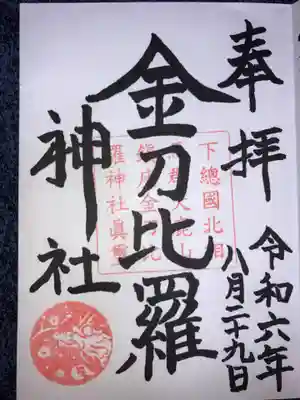 奉拝
金刀比羅
神社
令和六年
八月二十九日
下總國北相
馬郡大鹿山
鎮座金刀比
羅神社眞璽